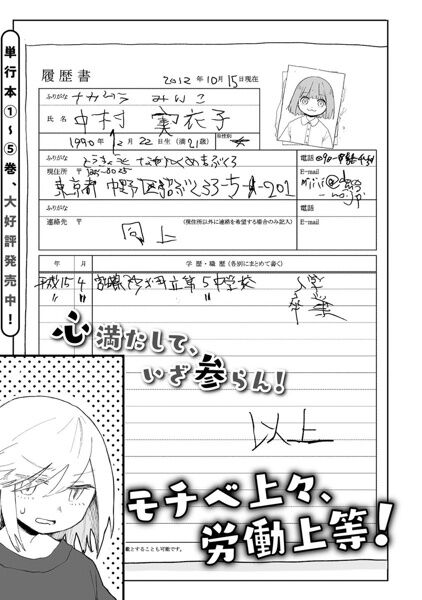 単行本①～⑤巻、大好評発売中！
履歴書
2012年10月15日現在
ふりがな ナカムラ みいこ
氏名 中村 実衣子
1990年12月22日生（満21歳）
ふりがな
現住所 〒
東京都中野区沼ぶくろ3-5-1-201
電話
E-mail
ふりがな
連絡先 〒
（現住所以外に連絡を希望する場合のみ記入）
電話
E-mail
同上
年 月 学歴・職歴（各別にまとめて書く）
平成15 4 第5中学校 入学
〃 〃 〃 卒業
心満たして、
いざ参らん！
以上
モチベ上々、
労働上等！
載とすることも可能です。